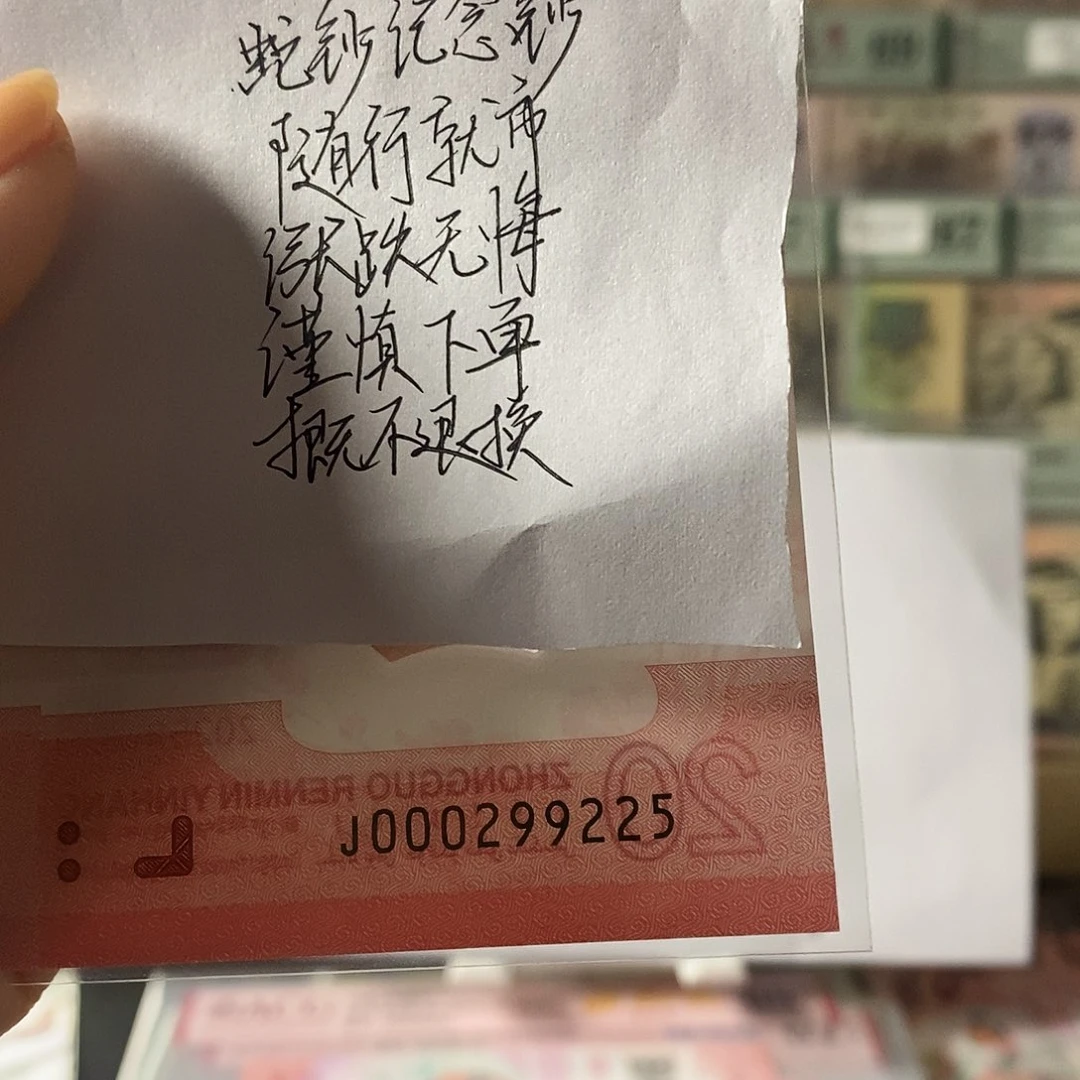 蛇钞纪念钞
随行就市
涨跌无悔
谨慎下单
概不退换
ZHONGGUO RENMIN YINHANG
20
J000299225